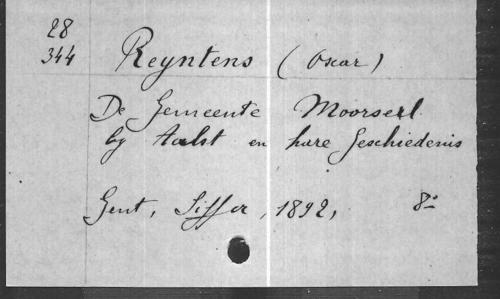 28
344
Reyntens (Oscar)
De Gemeente Moorsel
by Aalst en hare Geschiedenis
Gent, Siffer, 1892, 8°